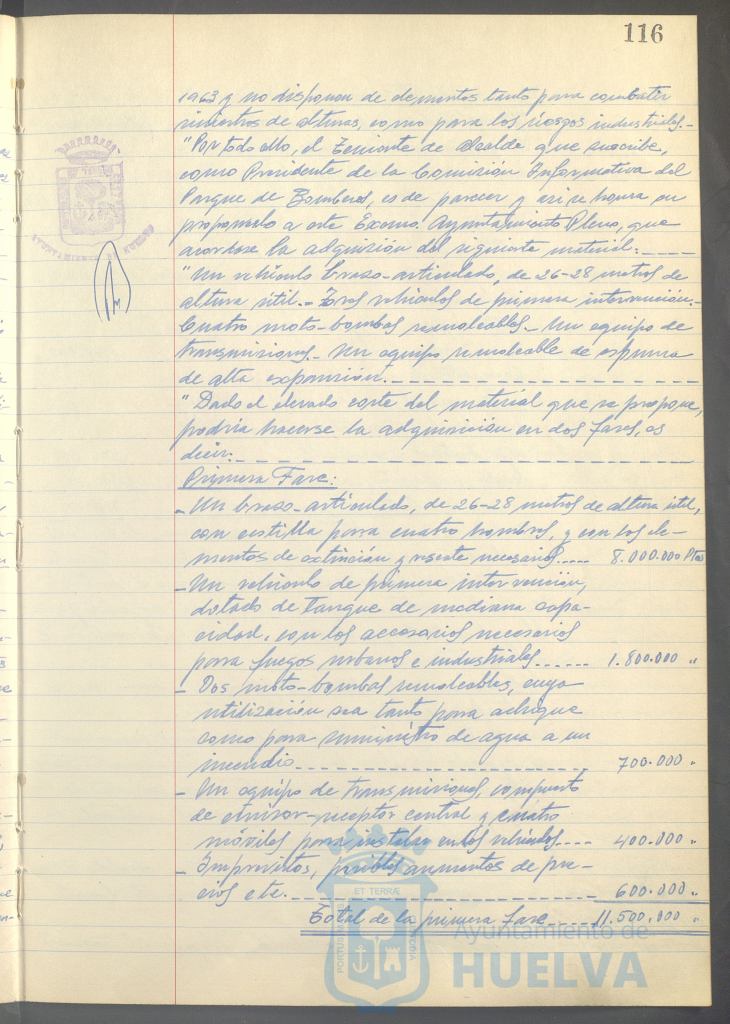 116
1963 y no disponen de elementos tanto para combatir
siniestros de alturas, como para los riesgos industriales.-
"Por todo ello, el Teniente de Alcalde que suscribe,
como Presidente de la Comisión Informativa del
Parque de Bomberos, es de parecer y así se honra en
proponerlo a este Excmo. Ayuntamiento Pleno, que
acordase la adquisición del siguiente material:----
"Un vehículo brazo-articulado, de 26-28 metros de
altura útil.- Tres vehículos de primera intervención.-
Cuatro moto-bombas remolcables.- Un equipo de
transmisiones.- Un equipo remolcable de espuma
de alta expansión.--------------------
"Dado el elevado coste del material que se propone,
podría hacerse la adquisición en dos fases, es
decir:--------------------
Primera Fase:
- Un brazo-articulado, de 26-28 metros de altura útil,
con cestilla para cuatro hombres, y con los ele-
mentos de extinción y rescate necesarios.... 8.000.000 Ptas
- Un vehículo de primera intervención,
dotado de tanque de mediana capa-
cidad, con los accesorios necesarios
para fuegos urbanos e industriales...... 1.800.000 "
- Dos moto-bombas remolcables, cuya
utilización sea tanto para achique
como para suministro de agua a un
incendio.-------------------- 700.000 "
- Un equipo de transmisiones, compuesto
de emisor-receptor central y cuatro
móviles para instalar en los vehículos.... 400.000 "
- Imprevistos, posibles aumentos de pre-
cios etc.-------------------- 600.000 "
Total de la primera fase.----- 11.500.000 "
ET TERRÆ
PORTUS MARIS
CUSTODIA
Ayuntamiento de
HUELVA